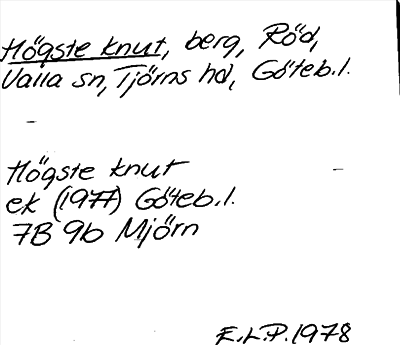 Högste knut, berg, Röd,
Valla sn, Tjörns hd, Göteb.l.
Högste knut
ek (1977) Göteb.l.
7B 9b Mjörn
E.L.P. 1978